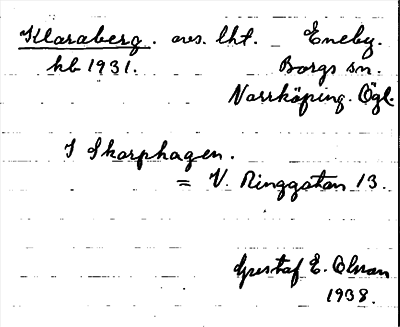 Klaraberg. avs. lht. Eneby.
hb 1931. Borgs sn.
Norrköping. Ögl.
I Skarphagen.
= V. Ringgatan 13.
Gustaf E. Olsson
1938.